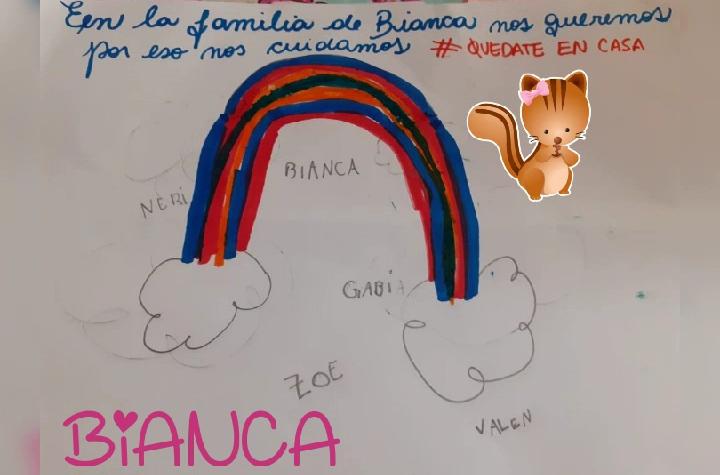 En la familia de Bianca nos queremos
por eso nos cuidamos # QUEDATE EN CASA
BIANCA
NERI
GABIA
ZOE
VALEN
BiANCA